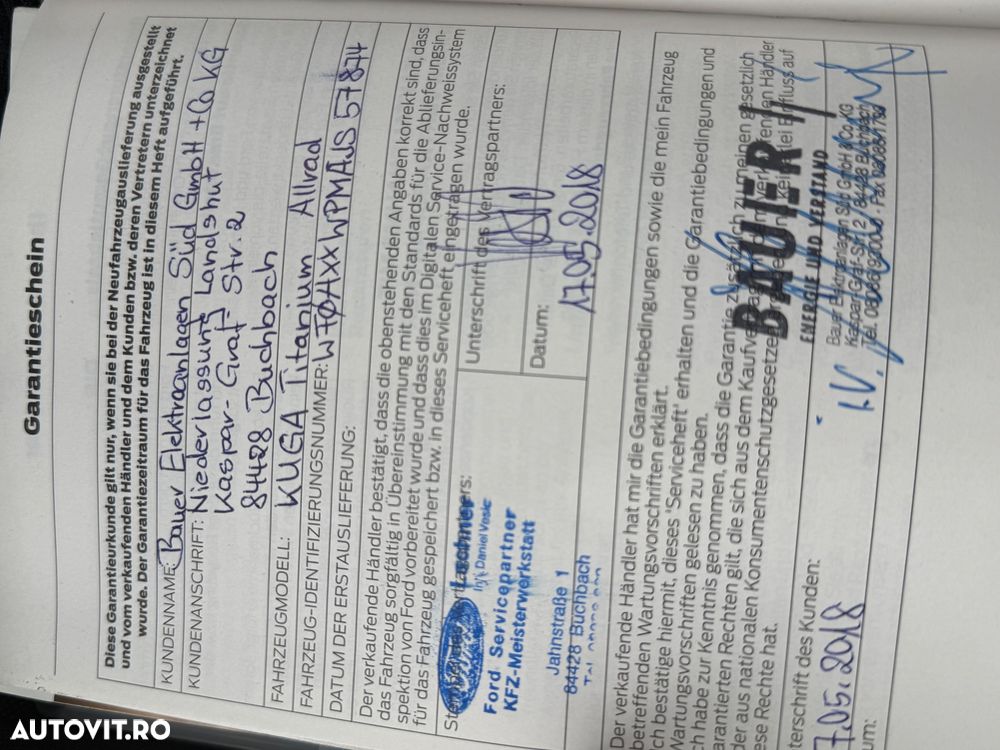 Garantieschein
Diese Garantieurkunde gilt nur, wenn sie bei der Neufahrzeugauslieferung ausgestellt
und vom verkaufenden Händler und dem Kunden bzw. deren Vertretern unterzeichnet
wurde. Der Garantiezeitraum für das Fahrzeug ist in diesem Heft aufgeführt.
KUNDENNAME: Bauer Elektroanlagen Süd GmbH + Co KG
KUNDENANSCHRIFT: Niederlassung Landshut
Kaspar-Graf-Str. 2
84428 Buchbach
FAHRZEUGMODELL: KUGA Titanium Allrad
FAHRZEUG-IDENTIFIZIERUNGSNUMMER: WFØAXXWPMAJS57874
DATUM DER ERSTAUSLIEFERUNG:
Der verkaufende Händler bestätigt, dass die obenstehenden Angaben korrekt sind, dass
das Fahrzeug sorgfältig in Übereinstimmung mit den Standards für die Ablieferungsin-
spektion von Ford vorbereitet wurde und dass dies im Digitalen Service-Nachweissystem
für das Fahrzeug gespeichert bzw. in dieses Serviceheft eingetragen wurde.
Unterschrift des Vertragspartners:
Lechner
Inh. Daniel Vesic
Ford Servicepartner
KFZ-Meisterwerkstatt
Jahnstraße 1
84428 Buchbach
Datum:
17.05.2018
Der verkaufende Händler hat mir die Garantiebedingungen sowie die mein Fahrzeug
betreffenden Wartungsvorschriften erklärt.
ch bestätige hiermit, dieses 'Serviceheft' erhalten und die Garantiebedingungen und
Wartungsvorschriften gelesen zu haben.
ch habe zur Kenntnis genommen, dass die Garantie zusätzlich zu meinen gesetzlich
arantierten Rechten gilt, die sich aus dem Kaufvertrag mit dem verkaufenden Händler
der aus nationalen Konsumentenschutzgesetzen ergeben und keinerlei Einfluss auf
ese Rechte hat.
terschrift des Kunden:
i.V.
BAUER
ENERGIE UND VERSTAND
Bauer Elektroanlagen Süd GmbH & Co KG
Kaspar-Graf-Str. 2 · 84428 Buchbach
7.05.2018
um:
AUTOVIT.RO